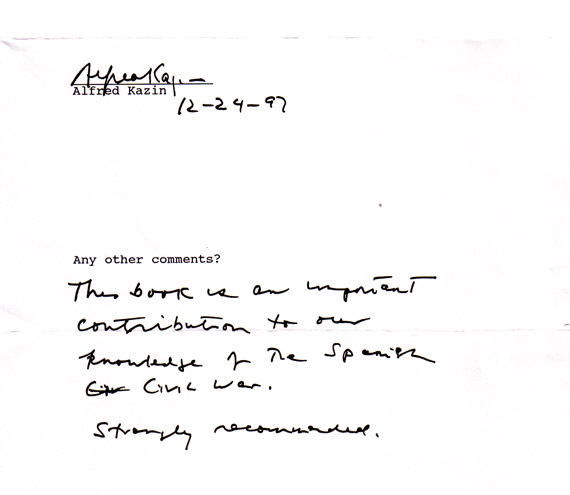 Alfred Kazin
Alfred Kazin
12-24-97
Any other comments?
This book is an important
contribution to our
knowledge of the Spanish
Civ Civil War.
Strongly recommended.